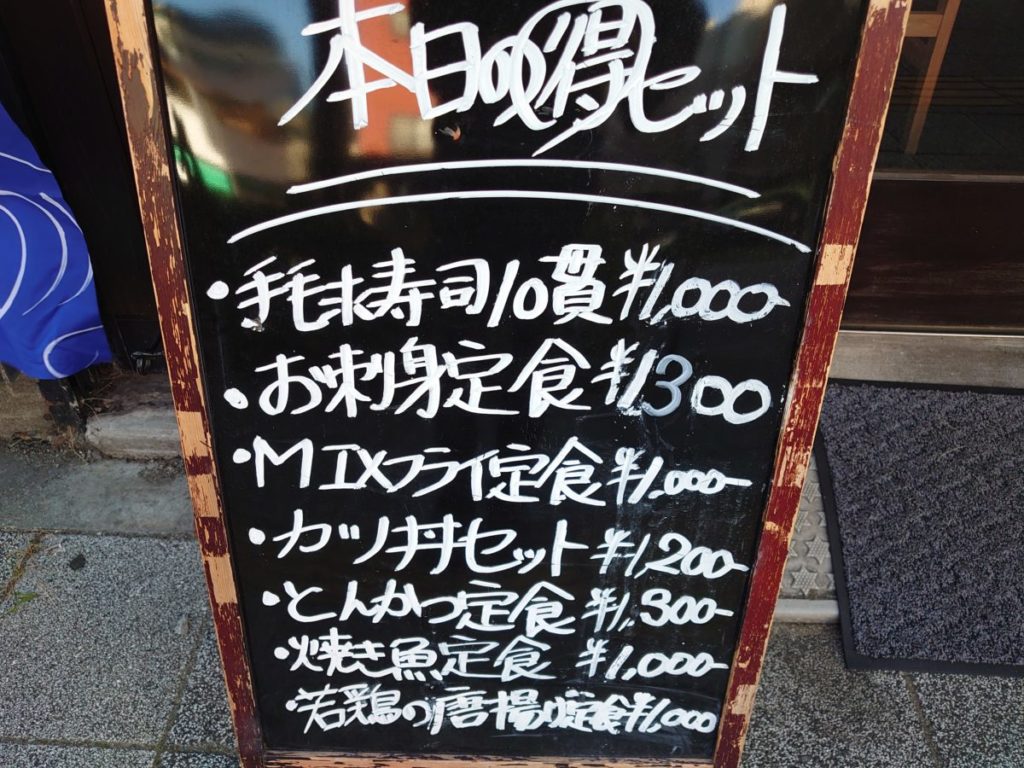 本日の得セット
・手毬寿司10貫 ¥1,000-
・お刺身定食 ¥1300
・MIXフライ定食 ¥1,000-
・カツ丼セット ¥1,200-
・とんかつ定食 ¥1,300-
・焼き魚定食 ¥1,000-
・若鶏の唐揚げ定食 ¥1,000